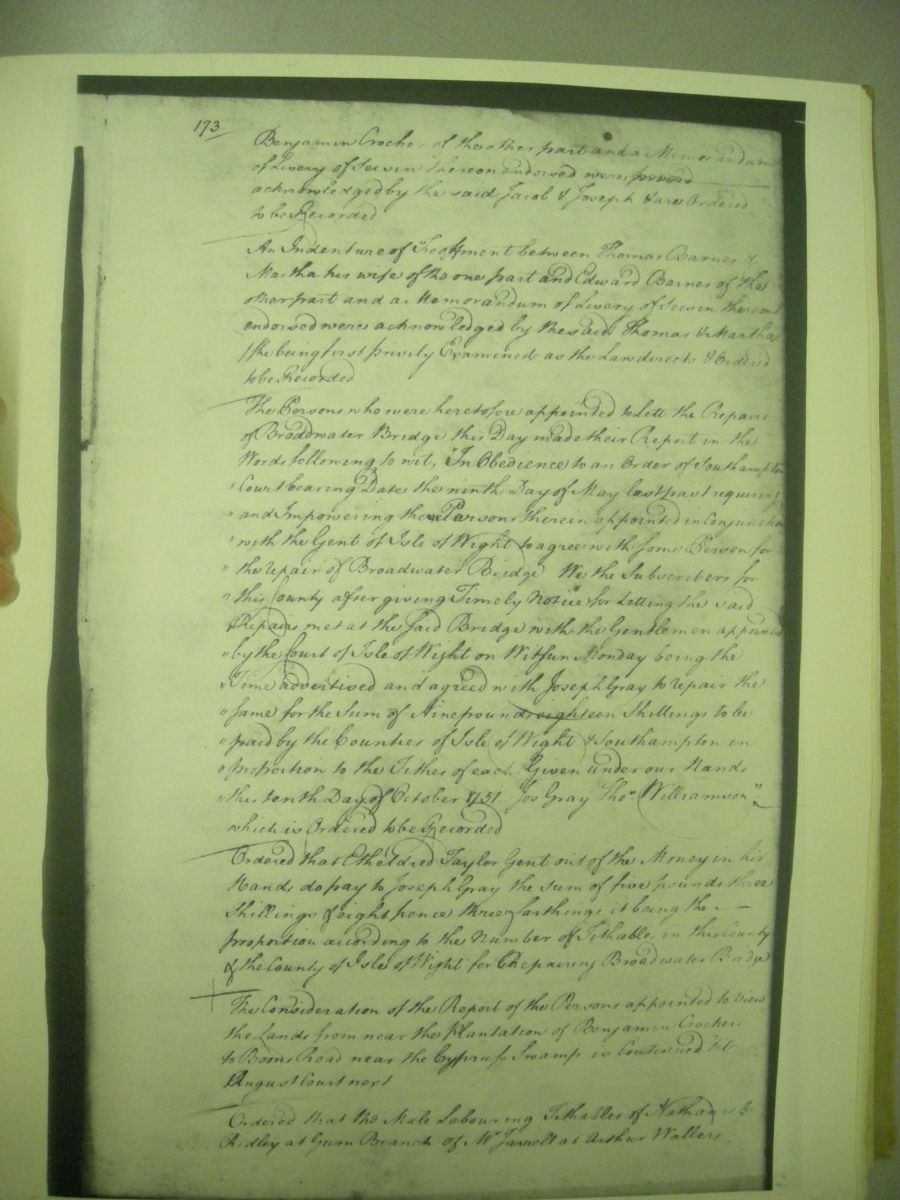 173
Benjamin Crocker of the other part and a Memorandum
of Livery of Seisin thereon endorsed were proved
acknowledged by the said Jacob & Joseph & are Ordered
to be Recorded
An Indenture of Feoffment between Thomas Barnes &
Martha his wife of the one part and Edward Barnes of the
other part and a Memorandum of Livery of Seisin thereon
endorsed were acknowledged by the said Thomas & Martha
she being first privily Examined as the Law directs & Ordered
to be Recorded
The Persons who were heretofore appointed to Lett the Repairs
of Broadwater Bridge this Day made their Report in the
Words following to wit, "In Obedience to an Order of Southampton
" Court bearing Date the ninth Day of May last past requiring
" and Impowering the Persons therein appointed in Conjunction
" with the Gent of Isle of Wight to agree with some Person for
" the repair of Broadwater Bridge We the Subscribers for
" this County after giving Timely Notice for Letting the said
" Repairs met at the said Bridge with the Gentlemen appointed
" by the Court of Isle of Wight on Witsun Monday being the
" Time advertised and agreed with Joseph Gray to repair the
" same for the Sum of Nine pounds eighteen Shillings to be
" paid by the Counties of Isle of Wight & Southampton in
" proportion to the Tithes of each Given under our Hands
" this tenth Day of October 1751 Jos Gray Thos. Williamson"
which is Ordered to be Recorded
Ordered that Etheldred Taylor Gent out of the Money in his
Hands do pay to Joseph Gray the sum of five pounds three
Shillings & eight pence three farthings it being the
proportion according to the Number of Tithables in this County
& the County of Isle of Wight for Repairing Broadwater Bridge
The Consideration of the Report of the Persons appointed to view
the Lands from near the Plantation of Benjamin Crocker
to Boons Road near the Cypruss Swamp is Continued till
August Court next
Ordered that the Male Labouring Tithables of Nathaniel
Ridley at Gum Branch of Mr Jarrell at Arthur Wallers